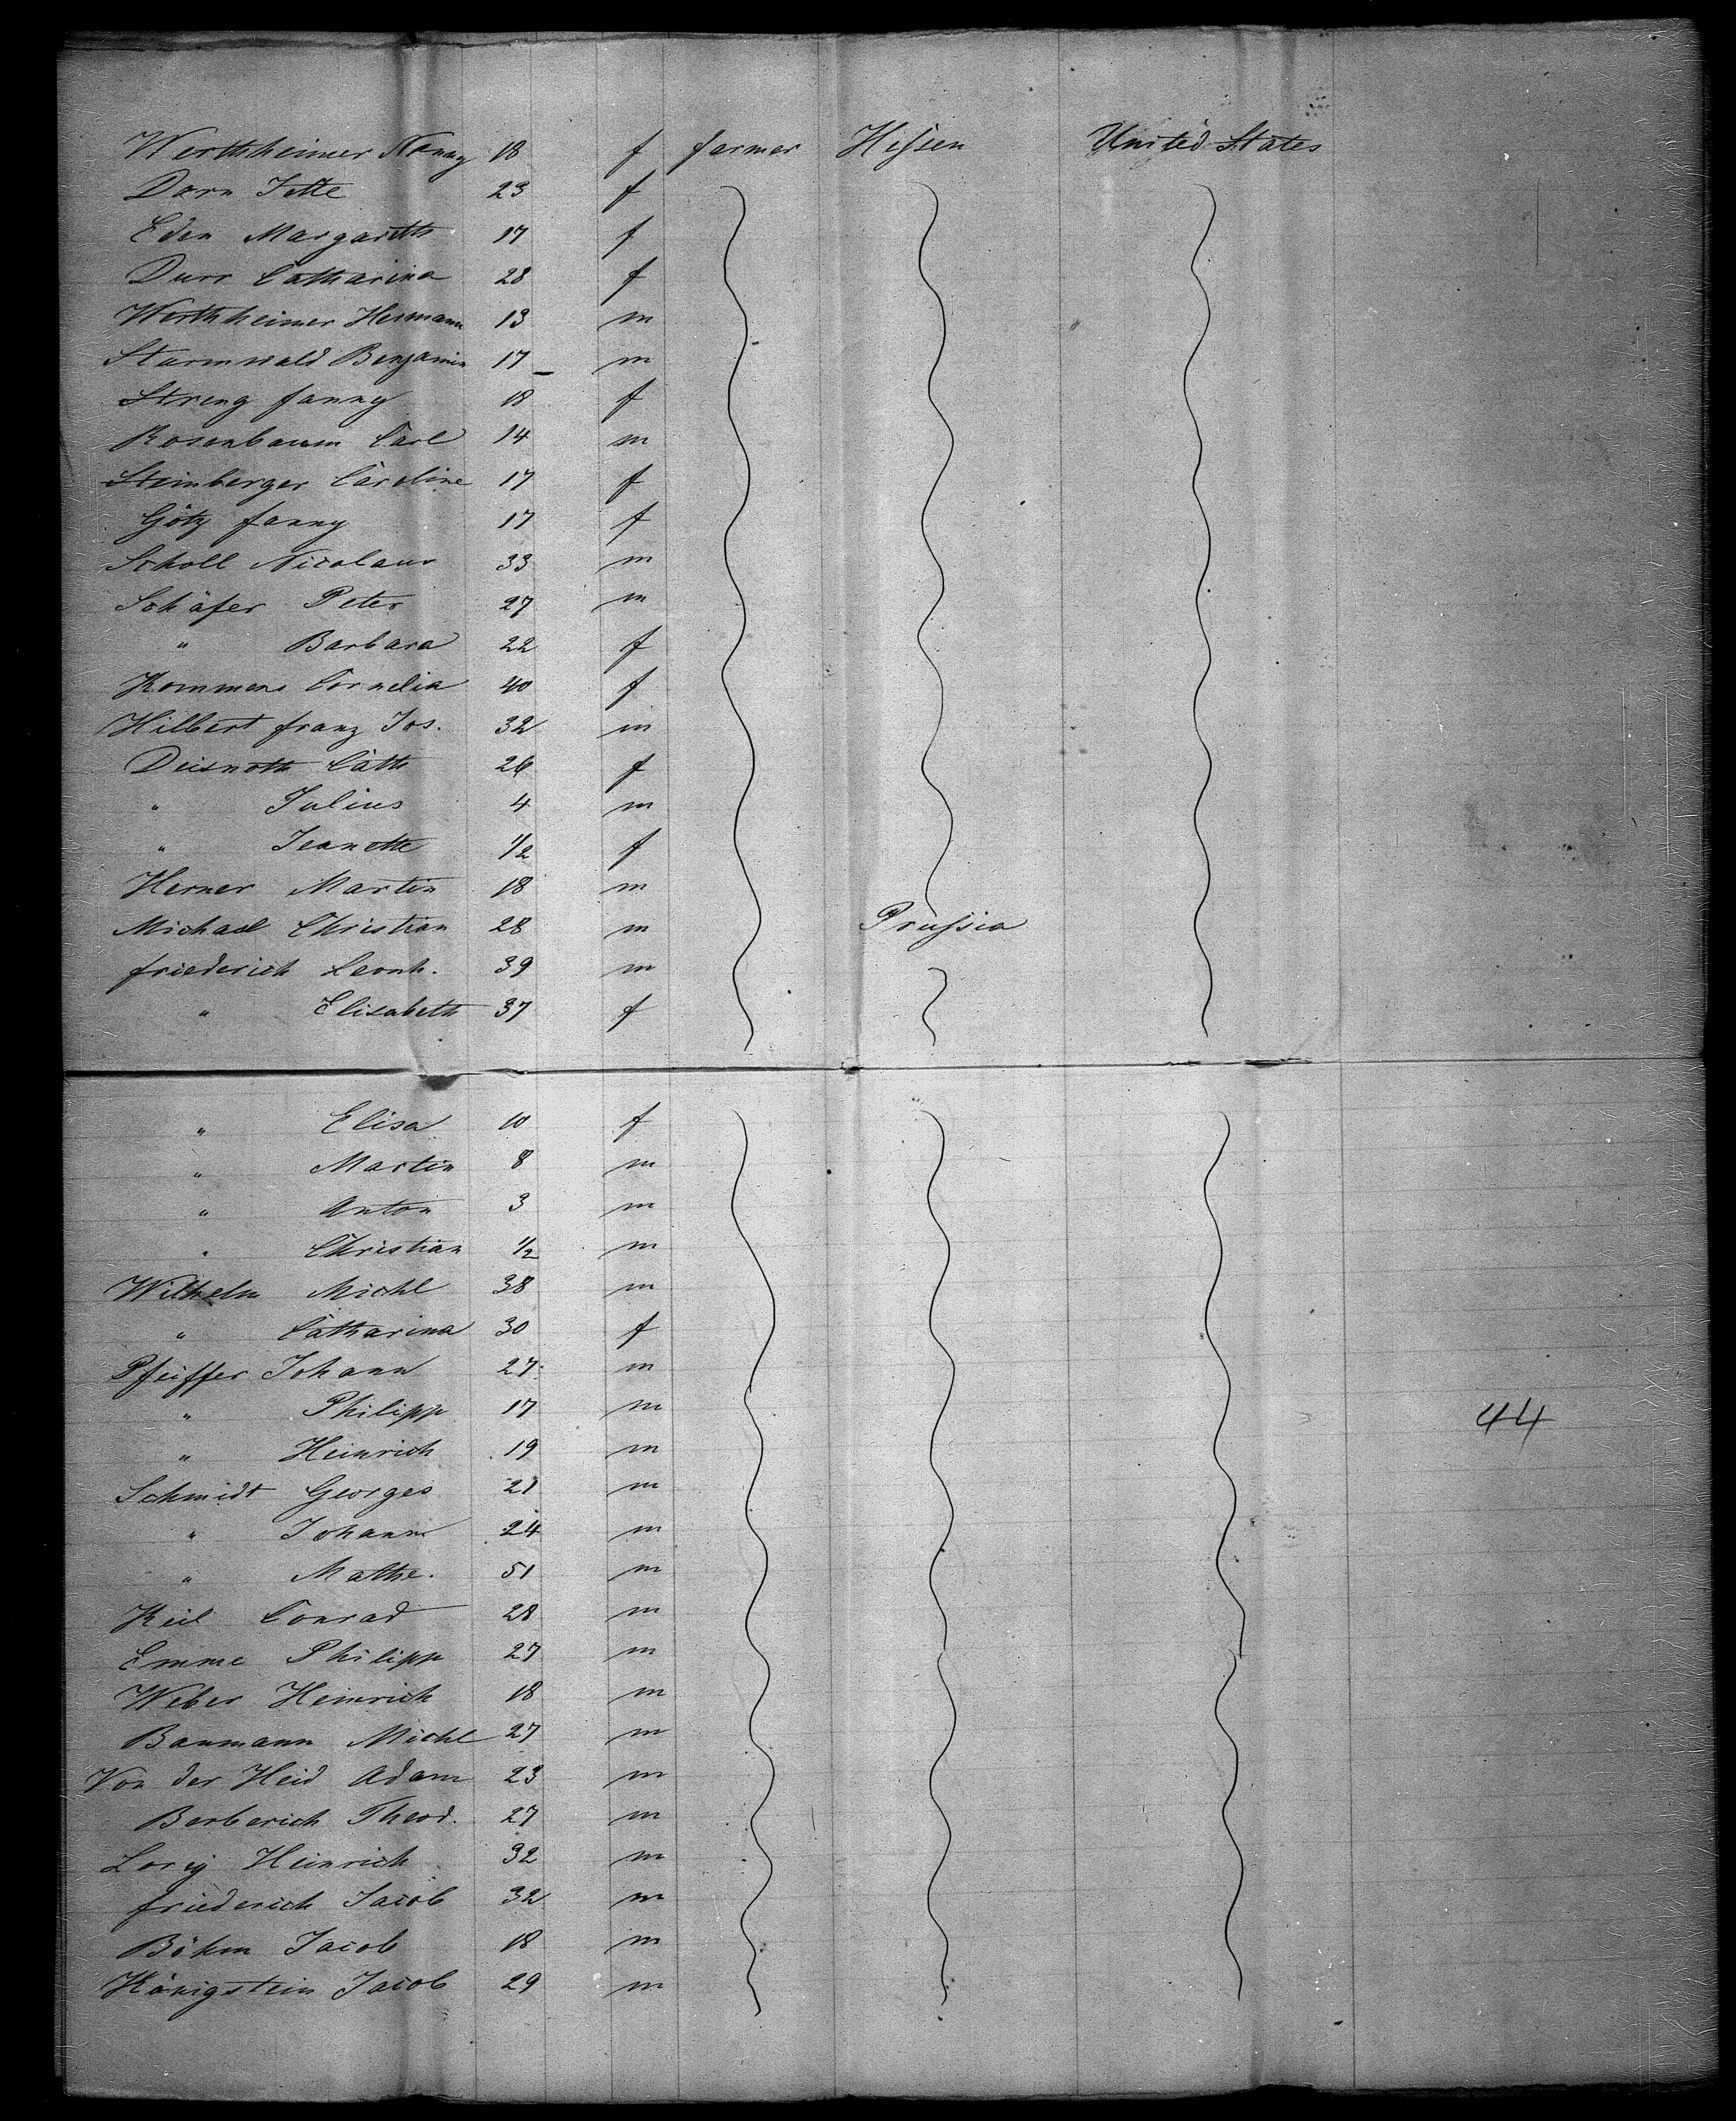 Werthheimer Nanny 18 f farmer Hessen United States
Dorn Jette 23 f
Eden Margareth 17 f
Durr Catharina 28 f
Werthheimer Hermann 13 m
Sturmwald Benjamin 17 m
Streng fanny 18 f
Rosenbaum Carl 14 m
Steinberger Caroline 17 f
Götz fanny 17 f
Scholl Nicolaus 33 m
Schäfer Peter 27 m
" Barbara 22 f
Kommens Cornelia 40 f
Hilbert franz Jos. 32 m
Deisnoth Cath 26 f
" Julius 4 m
" Jeanette 1/2 f
Herner Martin 18 m
Michael Christian 28 m Prussia
friederich Leonh. 39 m
" Elisabeth 37 f
" Elisa 10 f
" Martin 8 m
" Anton 3 m
" Christian 1/2 m
Wilhelm Michl 38 m
" Catharina 30 f
Pfeiffer Johann 27 m
" Philipp 17 m 44
" Heinrich 19 m
Schmidt Georges 21 m
" Johann 24 m
" Mathe. 51 m
Keil Conrad 28 m
Emme Philipp 27 m
Weber Heinrich 18 m
Baumann Michl 27 m
Von der Heid Adam 23 m
Berberich Theod. 27 m
Lorig Heinrich 32 m
friederich Jacob 32 m
Böhm Jacob 18 m
Königstein Jacob 29 m